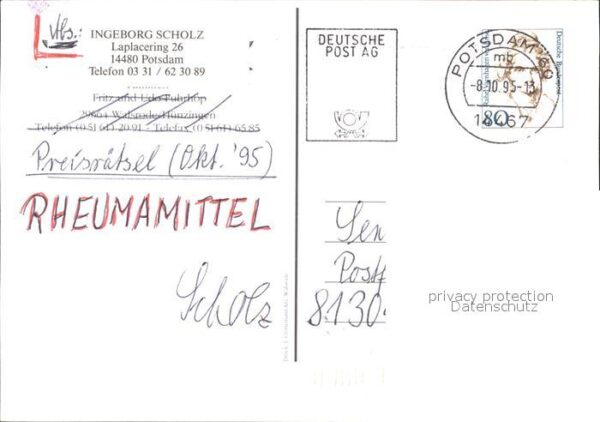 Abs.:
INGEBORG SCHOLZ
Laplacering 26
14480 Potsdam
Telefon 03 31 / 62 30 89
Fritz und Udo Fuhrhop
29664 Walsrode-Hünzingen
Telefon (0 51 61) 20 91 - Telefax (0 51 61) 65 85
Preisrätsel (Okt. '95)
RHEUMAMITTEL
Scholz
DEUTSCHE
POST AG
POTSDAM
mb
-8.10.95-13
14467
Deutsche Bundespost
80
Sen
Post
8130
privacy protection
Datenschutz